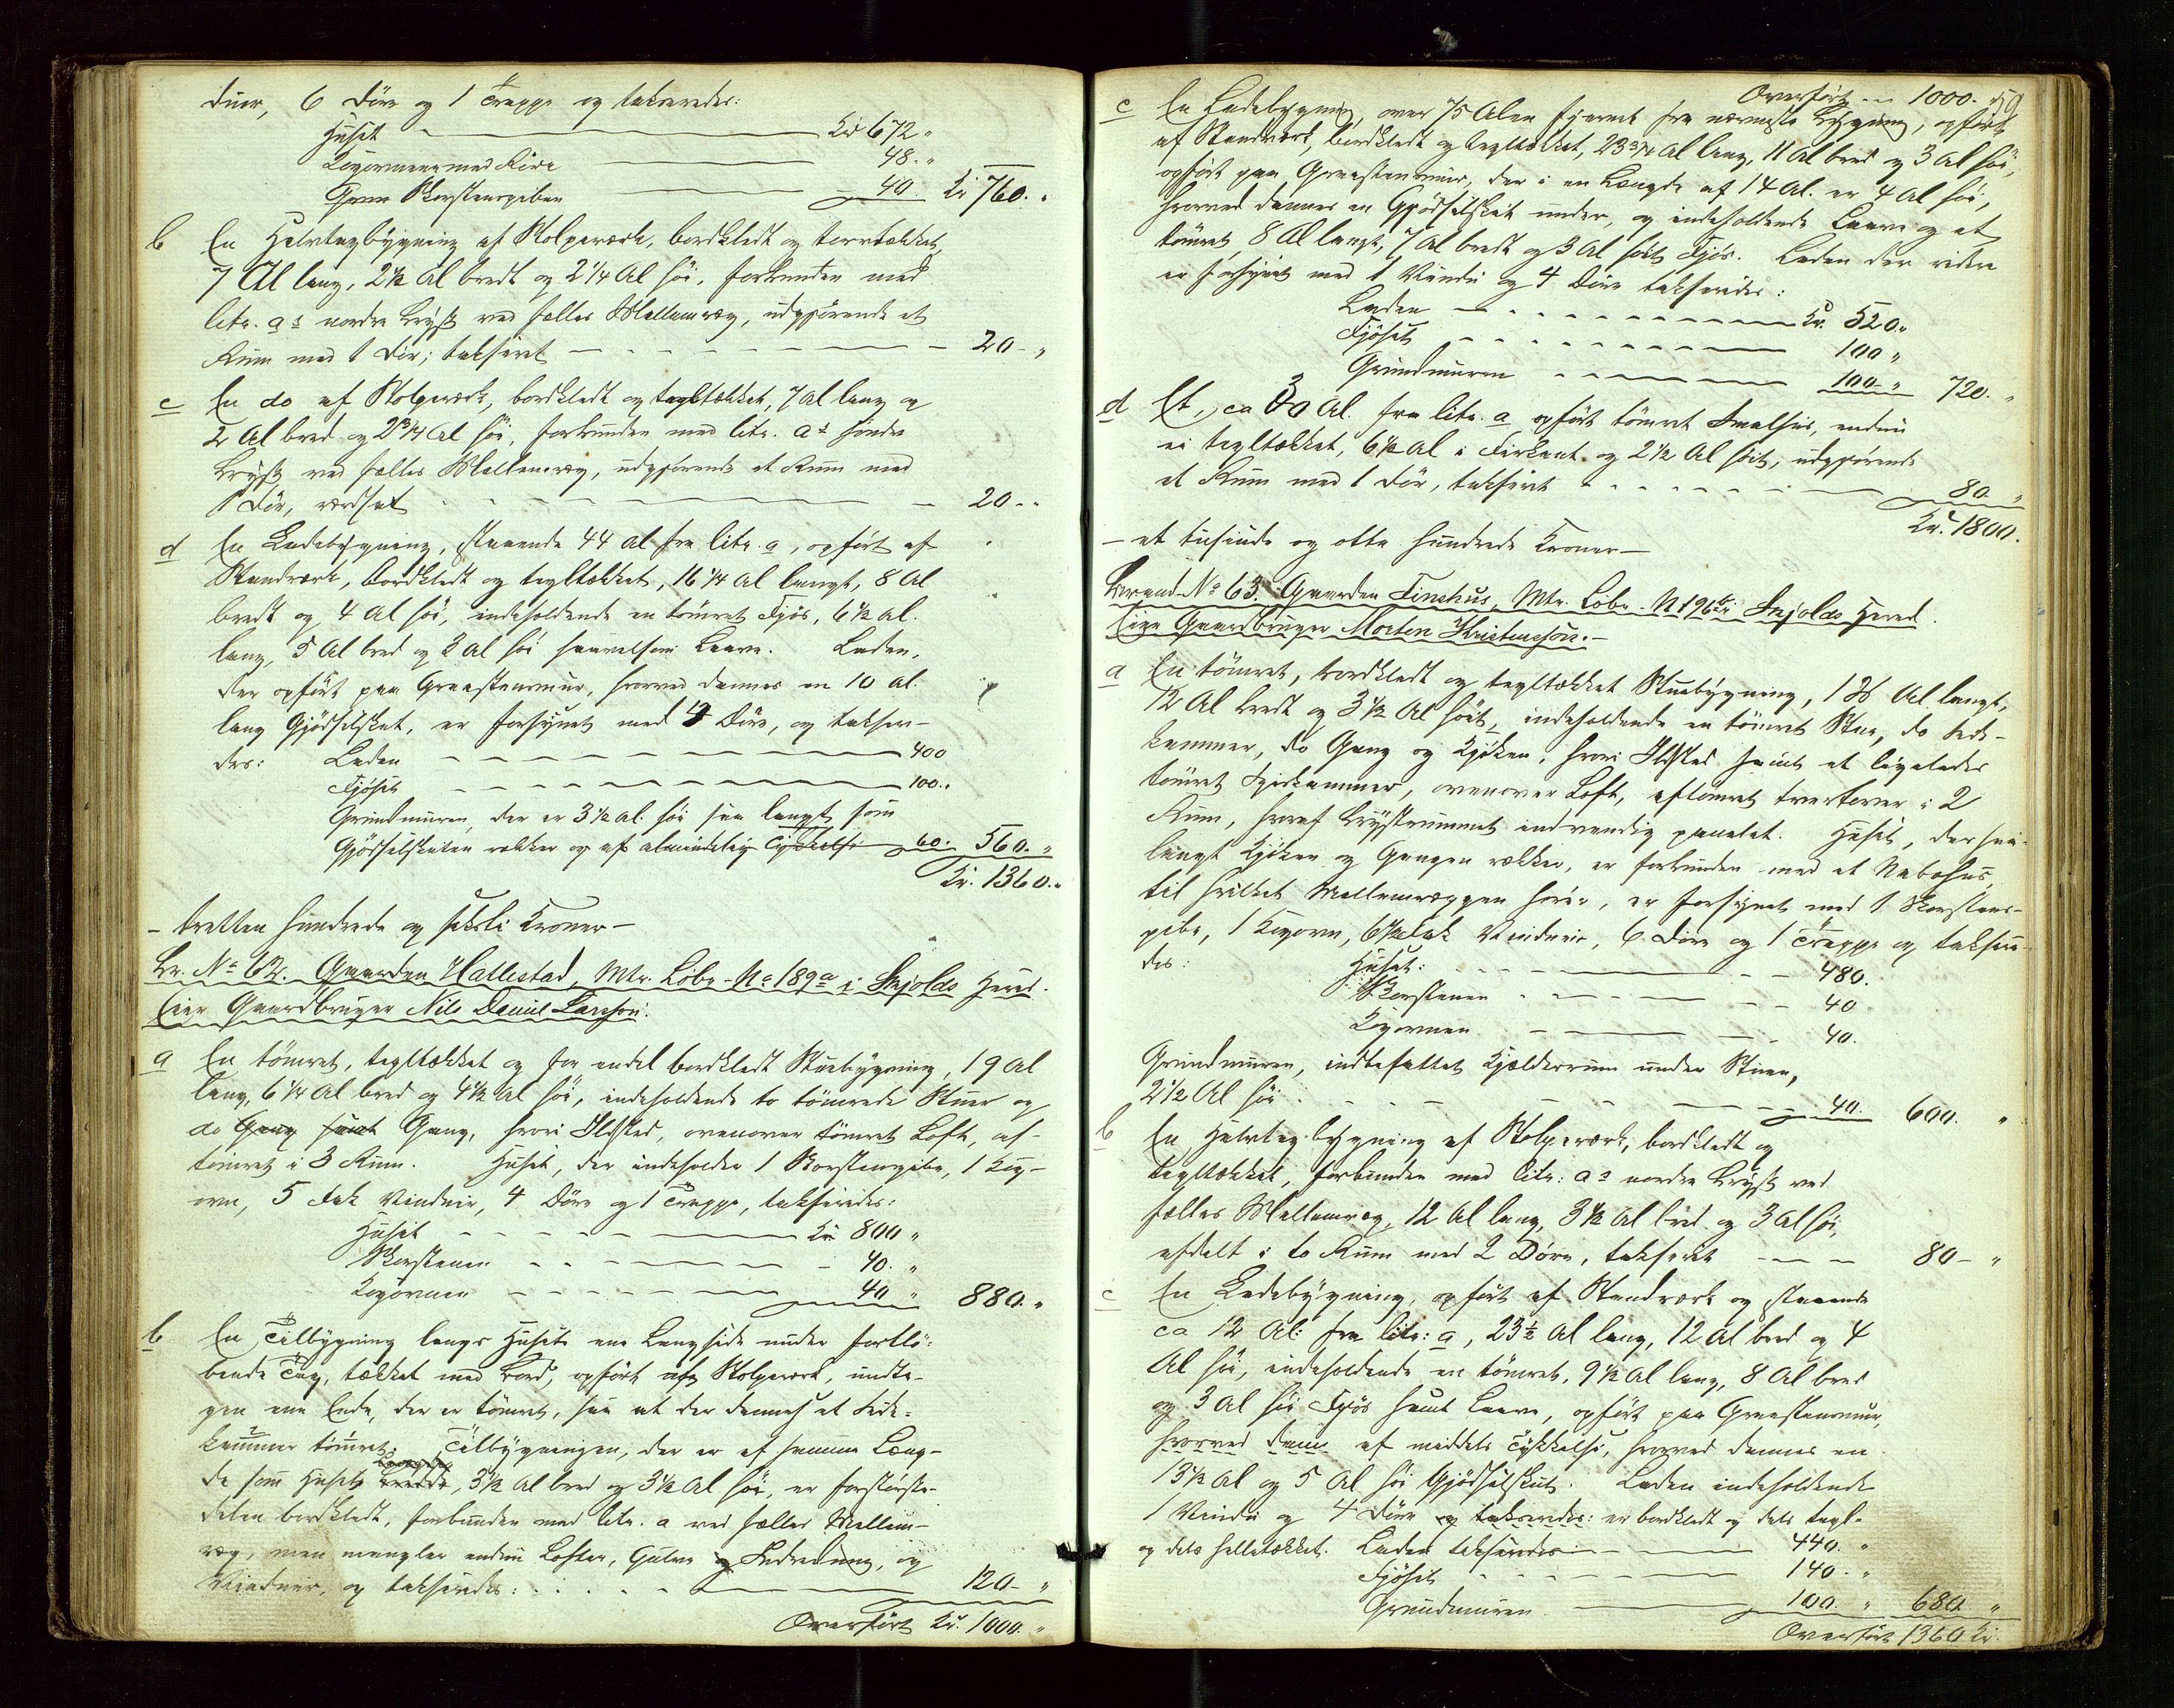 duer, 6 Döre og 1 Trappe og takseredes:
Huset Kr 672 "
Kogovnene med Kira 48. "
Gram Skorstenspiben 40 Kr 760. "
b En Halvtagbygning af Stolpeværk, bordklædt og torvtækket,
7 Al lang, 2 1/2 Al bredt og 2 1/4 Al höi, forbunden med
litr. a's nordre Bryst ved fælles Mellemvæg, udgjörende et
Rum med 1 Dör; takseret 20- "
c En do af Stolpeværk, bordklædt og tegltækket, 7 Al lang og
2 Al bred og 2 3/4 Al höi, forbunden med litr. a's söndre
Bryst ved fælles Mellemvæg, udgjörende et Rum med
1 Dör, værdsat 20- "
d En Ladebygning, staaende 44 Al fra litr. a, opfört af
Standværk, bordklædt og tegltækket, 16 1/4 Al langt, 8 Al
bredt og 4 Al höi, indeholdende en tömret Fjös, 6 1/2 Al.
lang, 5 Al bred og 3 Al höi saavelsom Laave. Laden,
der opfört paa Graastensmur, hvorved dannes en 10 Al.
lang Gjödselskut, er forsynet med 4 Döre, og takser-
des: Laden 400
Fjöset 100. "
Grundmuren, der er 3 1/2 Al. höi saa langt som
Gjödselskuten rækker og af almindelig Tykkelse 60. 560. "
Kr. 1360. "
- tretten hundrede og seksti Kroner -
Br. No 62. Gaarden Hallestad, Mtr. Löbe-No 189a i Skjolds Hered.
Eier Gaardbruger Nils Daniel Larsson.
a En tömret, tegltækket og for endel bordklædt Stuebygning, 19 Al
lang, 6 1/4 Al bred og 4 1/2 Al höi, indeholdende to tömrede Stuer og
do Gang samt Gang, hvori Ildsted, ovenover tömret Loft, af-
tömret i 3 Rum. Huset, der indeholder 1 Skorstenspibe, 1 Kog-
ovn, 5 Fak Vinduer, 4 Döre og 1 Trappe, takseredes:
Huset Kr. 800 "
Skorstenen 40. "
Kogovnen 40 " 880. "
b En Tilbygning langs Husets ene Langside under fortlö-
bende Tag, tækket med Bord, opfört af Stolpeværk, undta-
gen ene Ende, der er tömret, saa at der dannes et Side-
kammer tömret. Tilbygningen, der er af samme Læng-
de som Husets Bredde Længde, 3 1/2 Al bred og 3 1/2 Al höi, er forstörste-
delen bordklædt, forbunden med litr. a ved fælles Mellem-
væg, men mangler endnu Lofter, Gulve og Indredning, og
Vinduer, og takseredes: 120- "
Overfört Kr. 1000. "
Overfört 1000. 59
c En Ladebygning, over 75 Alen fjernet fra nærmeste Bygning, opfört
af Standværk, bordklædt og tegltækket, 23 3/4 Al lang, 11 Al bred og 3 Al höi,
opfört paa Graastensmur, der i en Længde af 14 Al. er 4 Al höi,
hvorved dannes en Gjödselskut under, og indeholdende Laave og et
tömret, 8 Al langt, 7 Al bredt og 3 Al höit Fjös. Laden der videre
er forsynet med 1 Vindu og 4 Döre takseredes:
Laden Kr. 520 "
Fjöset 100 "
Grundmuren 100- " 720. "
d Et, ca 30 Al. fra litr. a opfört tömret Smalhus, endnu
ei tegltækket, 6 1/2 Al i Firkant og 2 1/2 Al höit, udgjörende
et Rum med 1 Dör, takseret 80 "
Kr. 1800.
- et tusinde og otte hundrede Kroner -
Brand-No 63. Gaarden Tinehus, Mtr. Löbe-N 196 i Skjolds Hered.
Eier Gaardbruger Morten Christensson.-
a En tömret, bordklædt og tegltækket Stuebygning, 13 Al langt,
12 Al bredt og 3 1/2 Al höit, indeholdende en tömret Stue, do Side-
kammer, do Gang og Kjöken, hvori Ildsted samt et ligeledes
tömret Spiskammer, ovenover Loft, aftömret tvertover i 2
Rum, hvoraf Brystrummet indvendig panelet. Huset, der saa-
langt Kjöken og Gangen rækker, er forbunden med et Nabohus,
til hvilket Mellemvæggen hörer, er forsynet med 1 Skorstens-
pibe, 1 Kogovn, 6 1/2 Fak Vinduer, 6 Döre og 1 Trappe og taksere-
des: Huset: 480.
Skorstenen 40
Kogovnen 40.
Grundmuren, indbefattet Kjælderrum under Stuen,
2 1/2 Al höi 40. 600. "
b En Halvtag bygning af Stolpeværk, bordklædt og
tegltækket, forbunden med litr: a's nordre Bryst ved
fælles Mellemvæg, 12 Al lang, 3 1/2 Al bred og 3 Al höi,
afdelt i to Rum med 2 Döre, takseret 80- "
c En Ladebygning, opfört af Standværk og staaende
ca 12 Al: fra litr: a, 23 1/2 Al lang, 12 Al bred og 4
Al höi, indeholdende en tömret, 9 1/2 Al lang, 8 Al bred
og 3 Al höi Fjös samt Laave, opfört paa Graastensmur,
hvorved dann af middels Tykkelse, hvorved dannes en
13 1/2 Al og 5 Al höi Gjödselskut. Laden indeholdende
1 Vindu og 4 Döre og takseredes: er bordklædt og dels tegl-
og dels helletækket. Laden takseredes 440. "
Fjöset 140. "
Grundmuren 100. " 680 "
Overfört 1360 Kr.